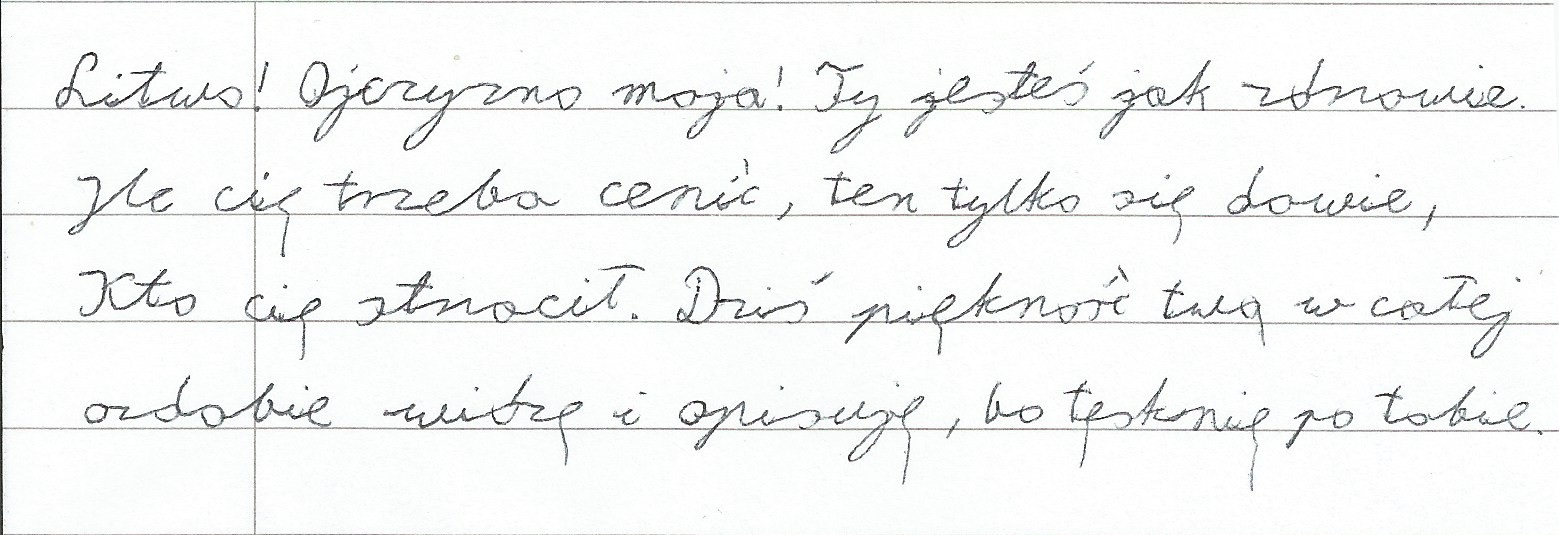 Litwo! Ojczyzno moja! Ty jesteś jak zdrowie.
Ile cię trzeba cenić, ten tylko się dowie,
Kto cię stracił. Dziś piękność twą w całej
ozdobie widzę i opisuję, bo tęsknię po tobie.